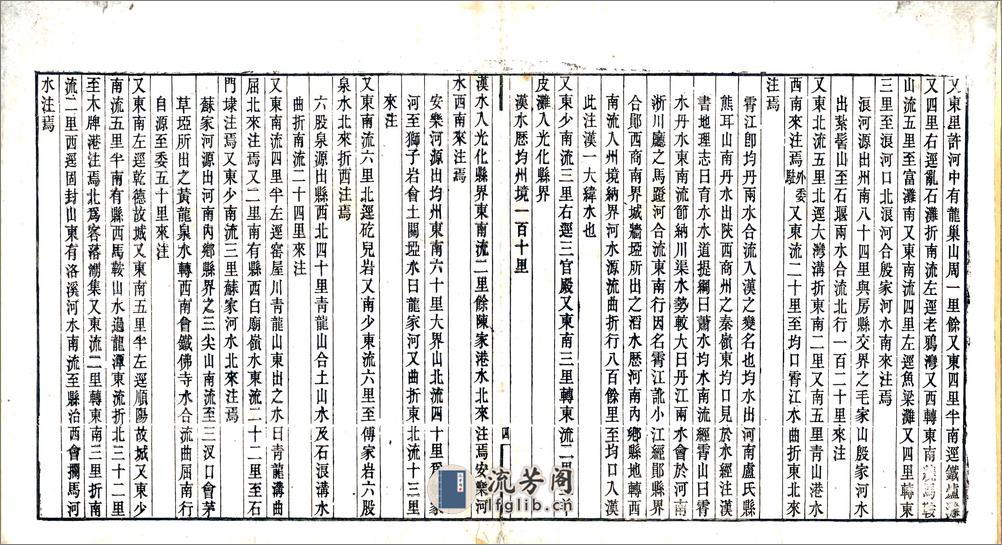 又東里許河中有龍巢山周一里餘又東四里半南逕鐵爐灘
又四里右逕亂石灘折南流左逕老鴉灣又西轉東南
山流五里至富灘南又東南流四里左逕魚梁灘又四里轉東
三里至浪河口北浪河合殷家河水南來注焉
浪河源出州南八十四里與房縣交界之毛家山殷家河水
出紮髻山至石堰兩水合流北行一百二十里來注
又東北流五里北逕大灣溝折東南二里又南五里青山港水
西南來注焉外委駐又東流二十里至均口霄江水曲折東北來
注焉
霄江卽均丹兩水合流入漢之變名也均水出河南盧氏縣
熊耳山南丹水出陝西商州之秦嶺東均口見於水經注漢
書地理志曰育水水道提綱曰蕭水均水南流經霄山曰霄
水丹水東南流節納川渠水勢較大曰丹江兩水會於河南
淅川廳之馬蹬河合流東南行因名霄江訛小江經鄖縣界
合鄖西商南界城牆埡所出之滔水歷河南內鄉縣地轉西
南流入州境納界河水源流曲折行八百餘里至均口入漢
此注漢一大緯水也
又東少南流三里右逕三官殿又東南三里轉東流二里
皮灘入光化縣界
漢水歷均州境一百十里
漢水入光化縣界東南流二里餘陳家港水北來注焉安樂河
水西南來注焉
安樂河源出均州東南六十里大界山北流四十里爲家
河至獅子岩會土關埡水曰龍家河又曲折東北流十三里
來注
又東南流六里北逕砣兒岩又南少東流六里至傅家岩六股
泉水北來折西注焉
六股泉源出縣西北四十里青龍山合土山水及石滾溝水
曲折南流二十四里來注
又東南流四里半左逕窑屋川青龍山東出之水曰青龍溝曲
屈北來注焉又二里南有縣西白廟嶺水東流二十二里至石
門埭注焉又東少南流三里蘇家河水北來注焉
蘇家河源出河南內鄉縣界之三尖山南流至三汊口會茅
草埡所出之黃龍泉水轉西南會鐵佛寺水合流曲屈南行
自源至委五十里來注
又東南左逕乾德故城又東南五里半左逕順陽故城又東少
南流五里半南有縣西馬鞍山水過龍潭東流折北三十二里
至木牌港注焉北爲客落潮集又東流二里轉東南三里折南
流二里西逕固封山東有洛溪河水南流至縣治西會攔馬河
水注焉
四
流芳阁
lfglib.cn